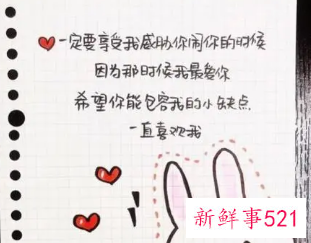 一定要享受我威胁你闹你的时候
因为那时候我最爱你
希望你能包容我的小缺点
一直喜欢我
新鲜事521